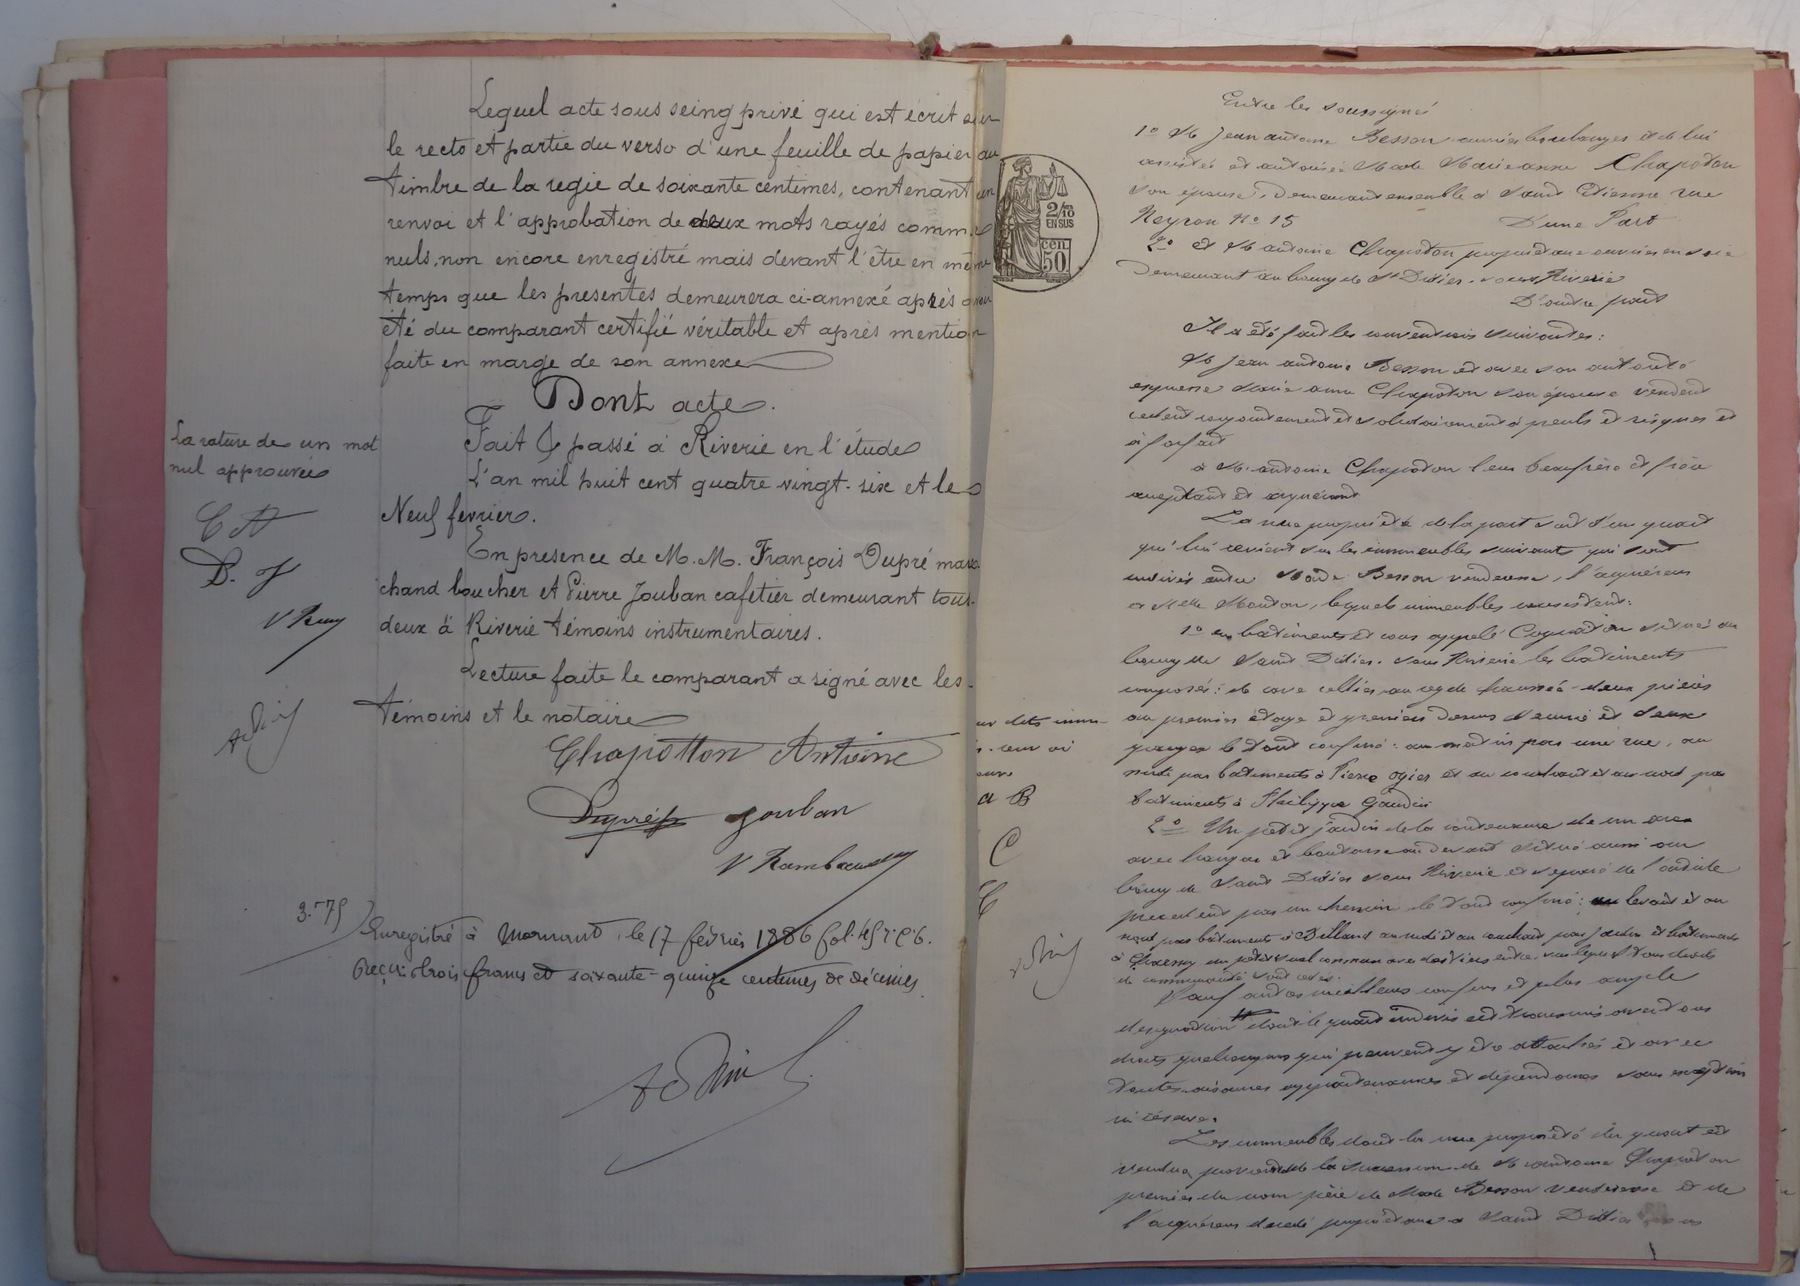 Lequel acte sous seing privé qui est écrit sur
le recto et partie du verso d'une feuille de papier au
timbre de la regie de soixante centimes, contenant un
renvoi et l'approbation de deux mots rayés comme
nuls, non encore enregistré mais devant l'être en même
temps que les presentes demeurera ci-annexé après avoir
été du comparant certifié véritable et après mention
faite en marge de son annexe
Dont acte.
Fait & passé à Riverie en l'étude
L'an mil huit cent quatre vingt-six et le
Neuf fevrier.
En presence de M.M. François Dupré mar
chand boucher et Pierre Jouban cafetier demeurant tous
deux à Riverie témoins instrumentaires.
Lecture faite le comparant a signé avec les
témoins et le notaire
La rature de un mot
nul approuvée
C A
D. J
Chapotton Antoine
Dupré Jouban
V Rambaud
3.75
Enregistré à Mornant, le 17 février 1886 fol. 45
Reçu: trois francs et soixante-quinze centimes de décimes
2/10 EN SUS
50 cen
Entre les soussignés
1º M Jean antoine Besson ouvrier boulanger et de lui
assistée et autorisée Made Marie anne Chapoton
son épouse, demeurant ensemble à Saint Etienne rue
Neyron Nº 15 D'une Part
2º et M antoine Chapoton propriétaire ouvrier en soie
demeurant au bourg de St Didier-sous-Riverie
D'autre part
Il a été fait les conventions suivantes:
M Jean antoine Besson et avec son autorité
expresse Marie anne Chapoton son épouse vendent
cedent conjointement et solidairement à perils et risques et
à forfait
à M. antoine Chapoton leur beaufrère et frère
acceptant et acquérant
La nue propriété de la part soit d'un quart
qui lui revient sur les immeubles suivants qui sont
indivis entre Made Besson venderesse, l'acquéreur
et Melle Mouton, lequels immeubles consistent:
1º en batiments et cour appelé situés au
bourg de Saint Didier-sous Riverie les batiments
composés: de cave cellier au rez de chaussée deux pièces
au premier étage et greniers dessus écurie et deux
granges le tout confiné: au matin par une rue, au
midi par batiments à Pierre Ogier et au couchant et au nord par
batiments à Philippe Gaudin
2º Un petit jardin de la contenance de un are
avec hangar et au devant situé aussi au
bourg de Saint Didier sous Riverie et séparé de l'article
precedent par un chemin le tout confiné: levant et au
nord par bâtiments à Billard au midi et au couchant par jardin et bâtiments
de communauté sont cedés.
Sauf autres meilleurs confins et plus ample
designation dont le quart indivis est transmis avec tous
droits quelconques qui peuvent y être attachés et avec
toutes aisances appartenances et dépendances sans exception
ni réserve.
Les immeubles dont la nue propriété du quart est
vendue provient de la succession de M antoine Chapoton
premier du nom père de Made Besson venderesse et de
l'acquéreur décédé propriétaire à Saint Didier sous
a B
C